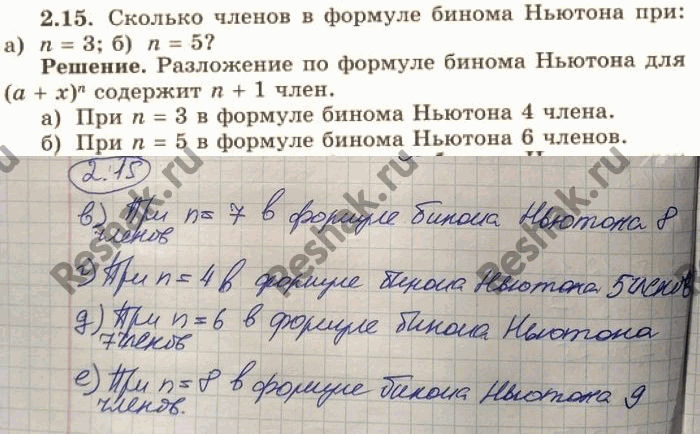 2.15. Сколько членов в формуле бинома Ньютона при:
а) n = 3; б) n = 5?
Решение. Разложение по формуле бинома Ньютона для
(a + x)ⁿ содержит n + 1 член.
а) При n = 3 в формуле бинома Ньютона 4 члена.
б) При n = 5 в формуле бинома Ньютона 6 членов.
2.15
в) При n = 7 в формуле бинома Ньютона 8
членов
г) При n = 4 в формуле бинома Ньютона 5 членов
д) При n = 6 в формуле бинома Ньютона
7 членов
е) При n = 8 в формуле бинома Ньютона 9
членов.
Reshak.ru
Reshak.ru
Reshak.ru